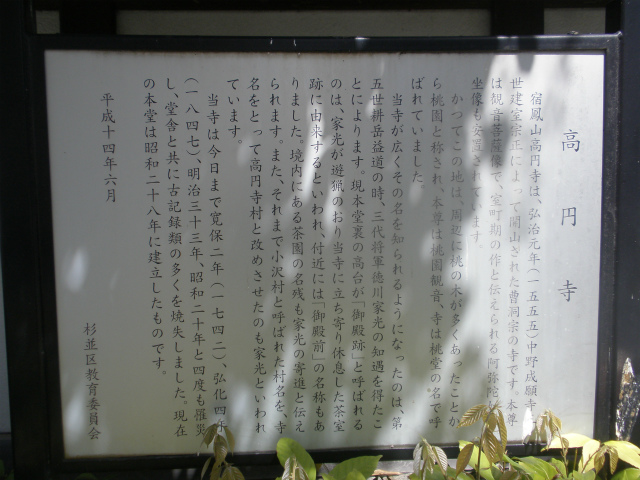 高円寺
宿鳳山高円寺は、弘治元年(一五五五)中野成願寺
世建室宗正によって開山された曹洞宗の寺です。本尊
は観音菩薩像で、室町期の作と伝えられる阿弥陀
坐像も安置されています。
かつてこの地は、周辺に桃の木が多くあったことか
ら桃園と称され、本尊は桃園観音、寺は桃堂の名で呼
ばれていました。
当寺が広くその名を知られるようになったのは、第
五世耕岳益道の時、三代将軍徳川家光の知遇を得たこ
とによります。現本堂裏の高台が「御殿跡」と呼ばれる
のは、家光が遊猟のおり当寺に立ち寄り休息した茶室
跡に由来するといわれ、付近には「御殿前」の名称もあ
りました。境内にある茶園の名残も家光の寄進と伝え
られます。また、それまで小沢村と呼ばれた村名を、寺
名をとって高円寺村と改めさせたのも家光といわれ
ています。
当寺は今日まで寛保二年(一七四二)、弘化四年
(一八四七)、明治三十三年、昭和二十年と四度も罹災
し、堂舎と共に古記録類の多くを焼失しました。現在
の本堂は昭和二十八年に建立したものです。
平成十四年六月
杉並区教育委員会